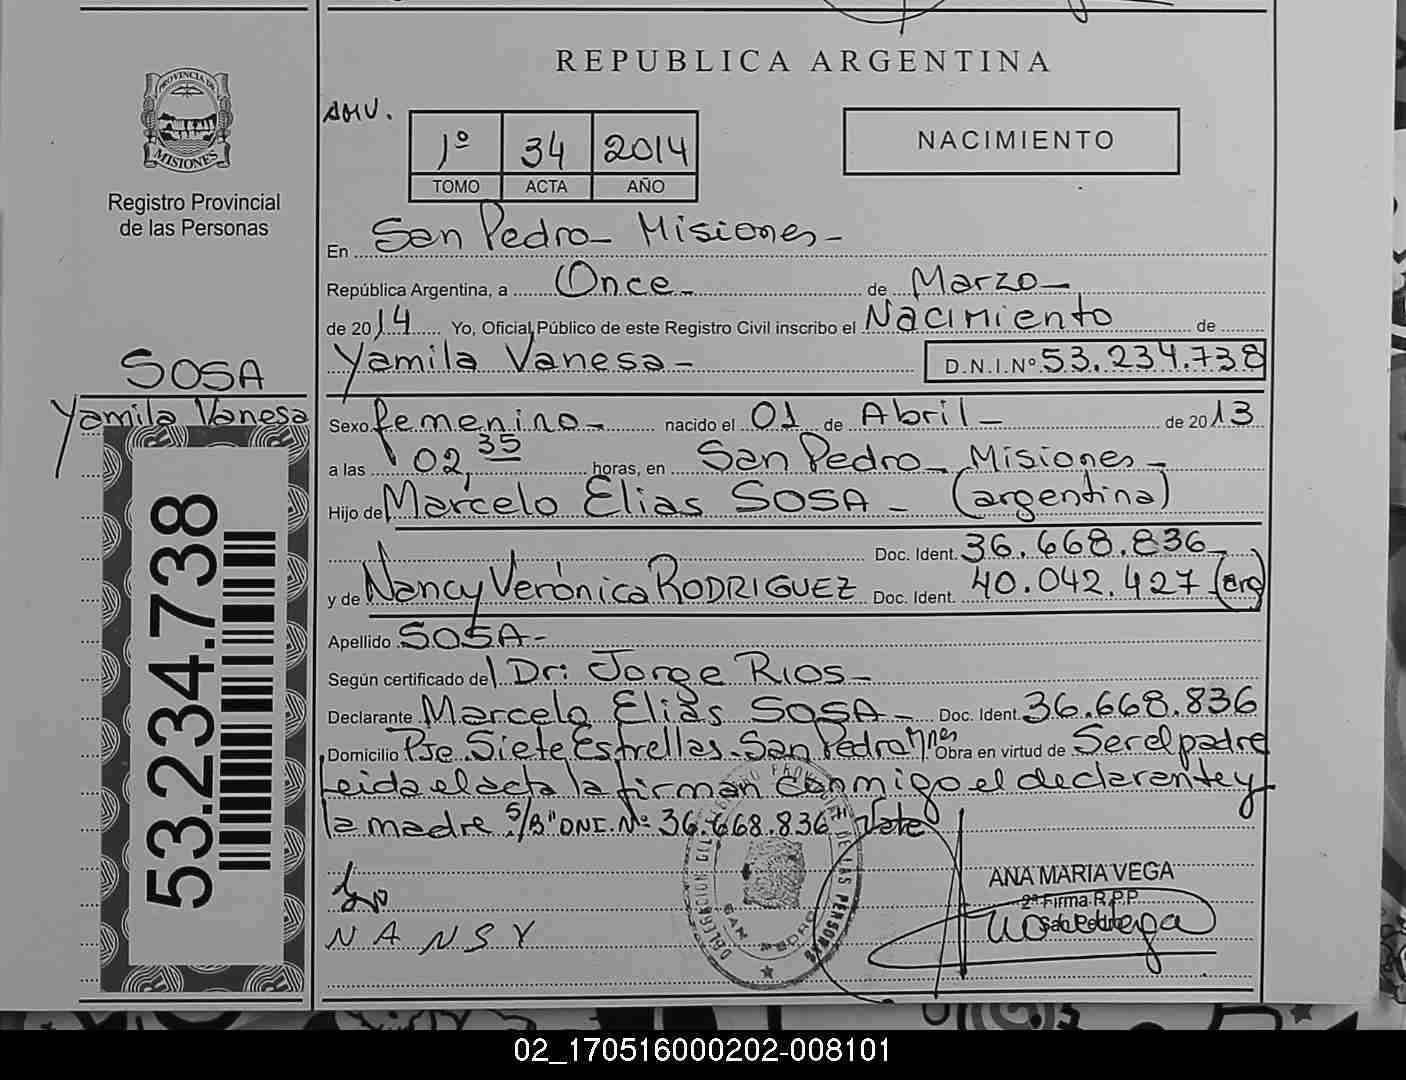 REPUBLICA ARGENTINA
PROVINCIA DE
MISIONES
Registro Provincial
de las Personas
SOSA
Yamila Vanesa
53.234.738
1º 34 2014
TOMO ACTA AÑO
NACIMIENTO
En San Pedro - Misiones -
República Argentina, a Once - de Marzo -
de 2014 Yo, Oficial Público de este Registro Civil inscribo el Nacimiento de
Yamila Vanesa - D.N.I.Nº 53.234.738
Sexo femenino - nacido el 01 de Abril - de 2013
a las 02,35 horas, en San Pedro - Misiones -
Hijo de Marcelo Elias SOSA - (argentina)
Doc. Ident. 36.668.836 -
y de Nancy Verónica RODRIGUEZ Doc. Ident. 40.042.427 (arg)
Apellido SOSA -
Según certificado del Dr: Jorge RIOS -
Declarante Marcelo Elias SOSA - Doc. Ident. 36.668.836
Domicilio Pje. Siete Estrellas - San Pedro Mnes Obra en virtud de Ser el padre
Leida el acta la firman conmigo el declarante y
la madre S/B" DNI. Nº 36.668.836" Vale
NANSY
ANA MARIA VEGA
2ª Firma R.P.P
San Pedro
02_170516000202-008101